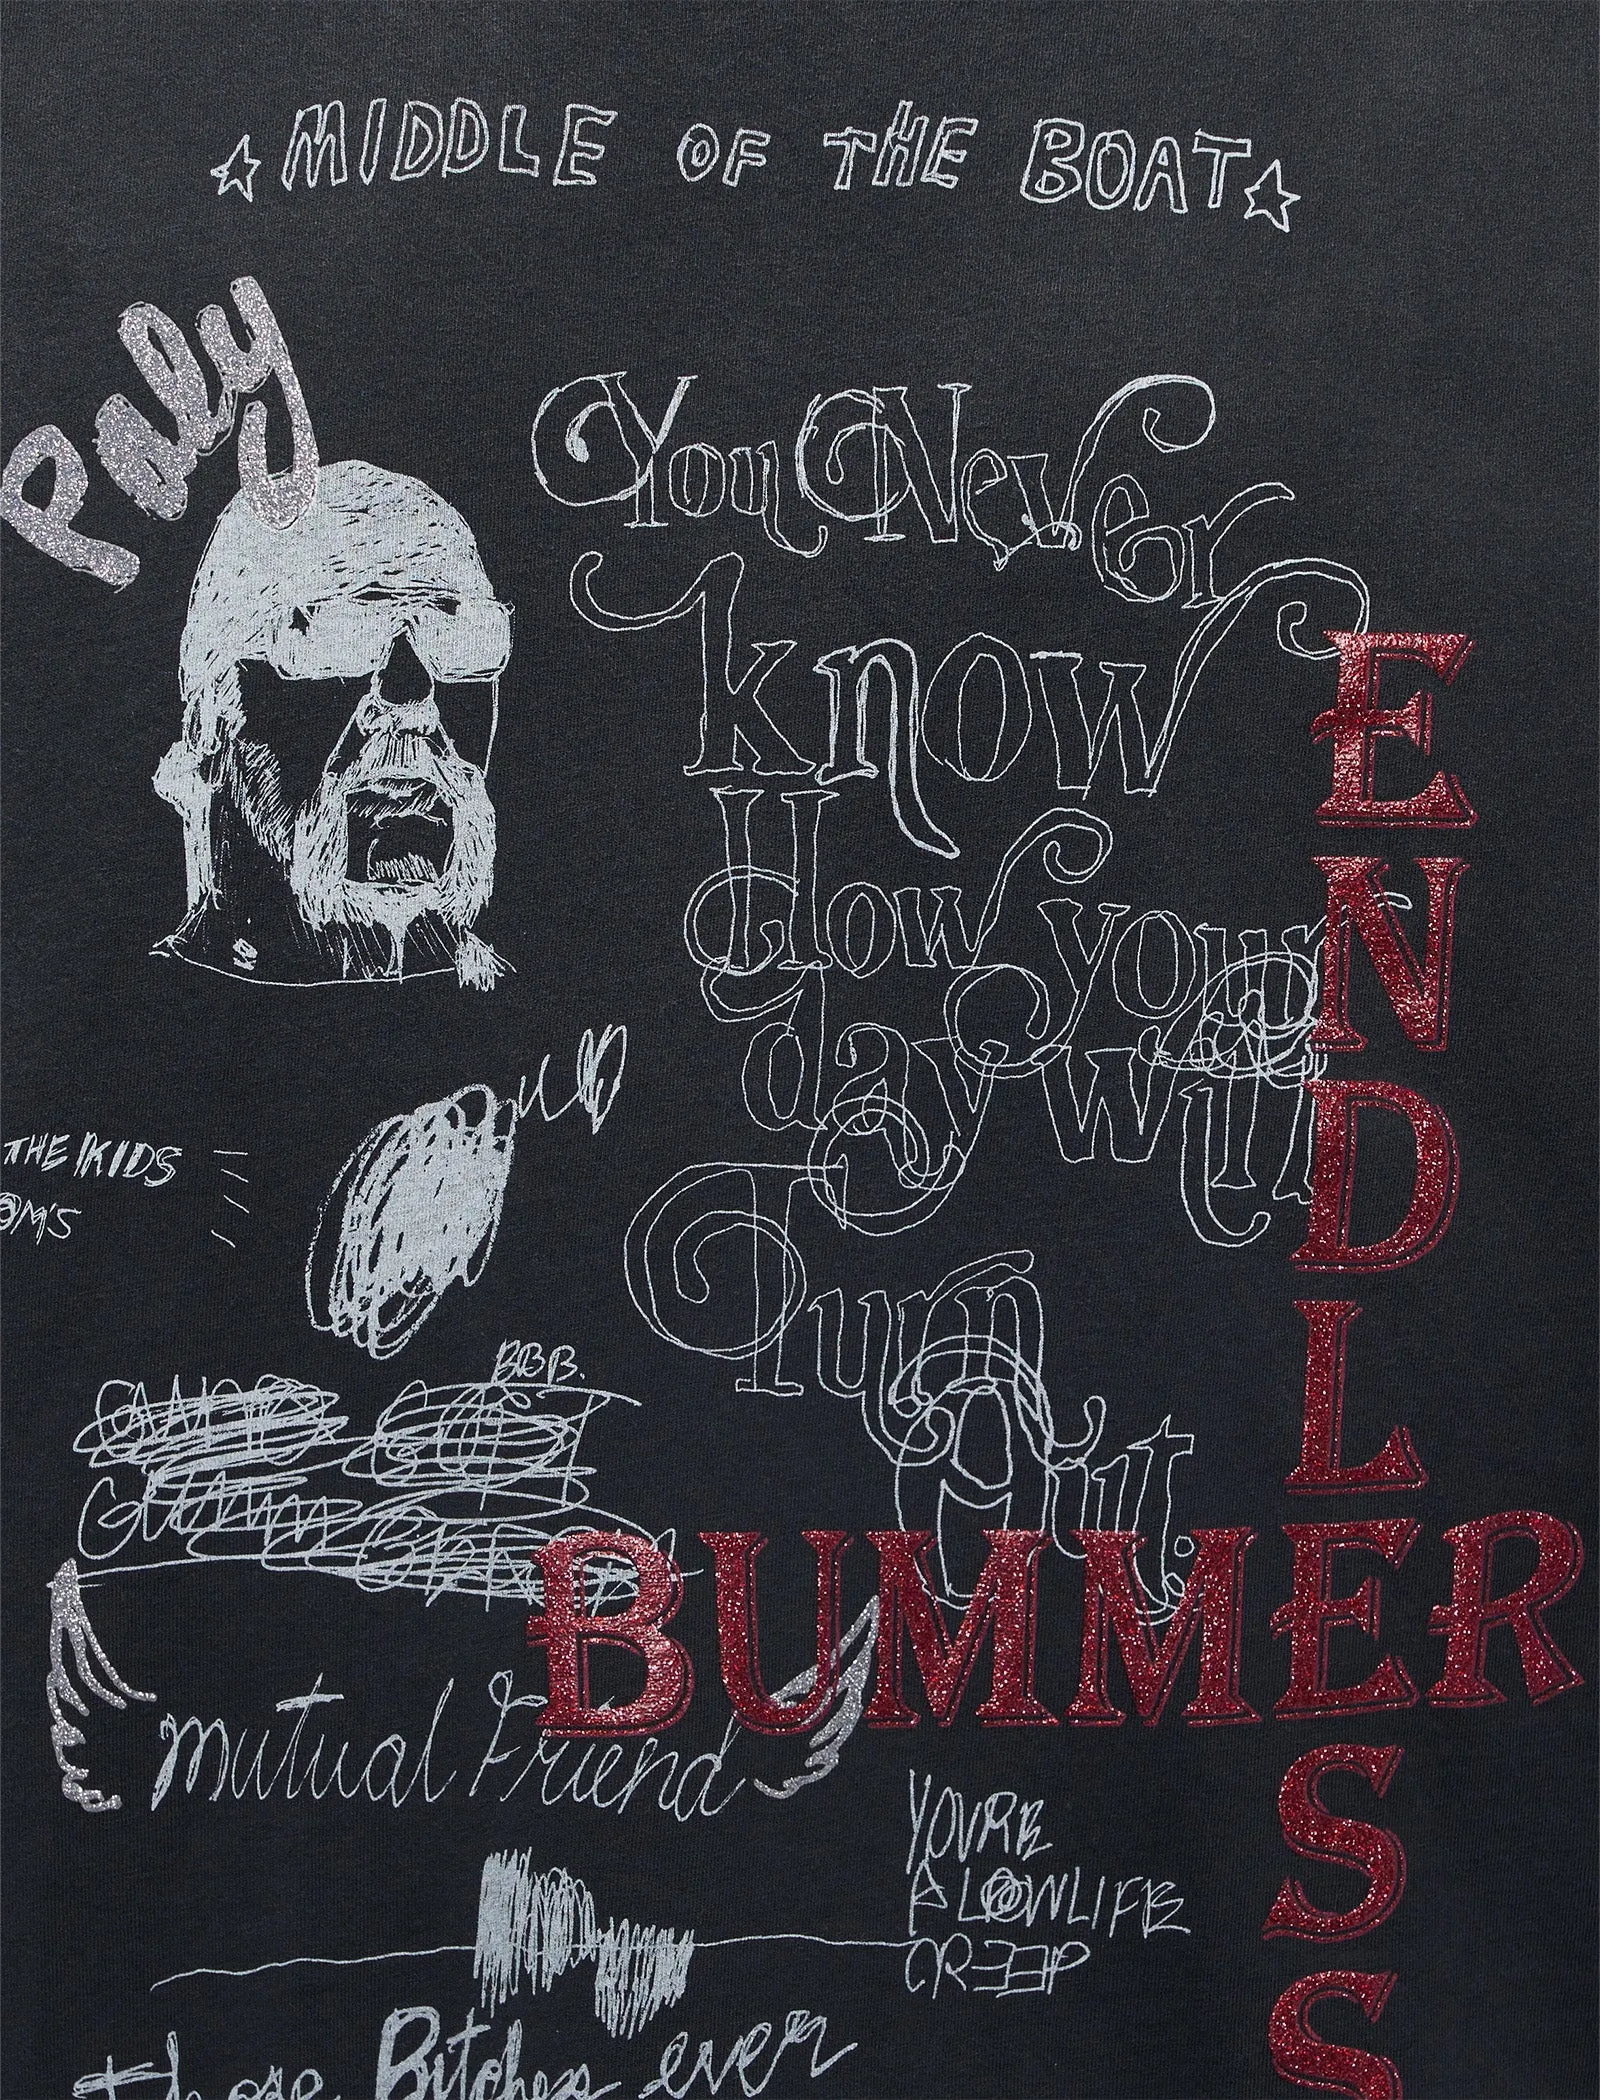 ☆MIDDLE OF THE BOAT☆
Paly
You Never
know
How your
day will
Turn
Out.
ENDLESS
BUMMER
THE KIDS
OM'S
BBB.
Mutual Friend
YOU'RE
A LOWLIFE
CREEP
those Bitches ever